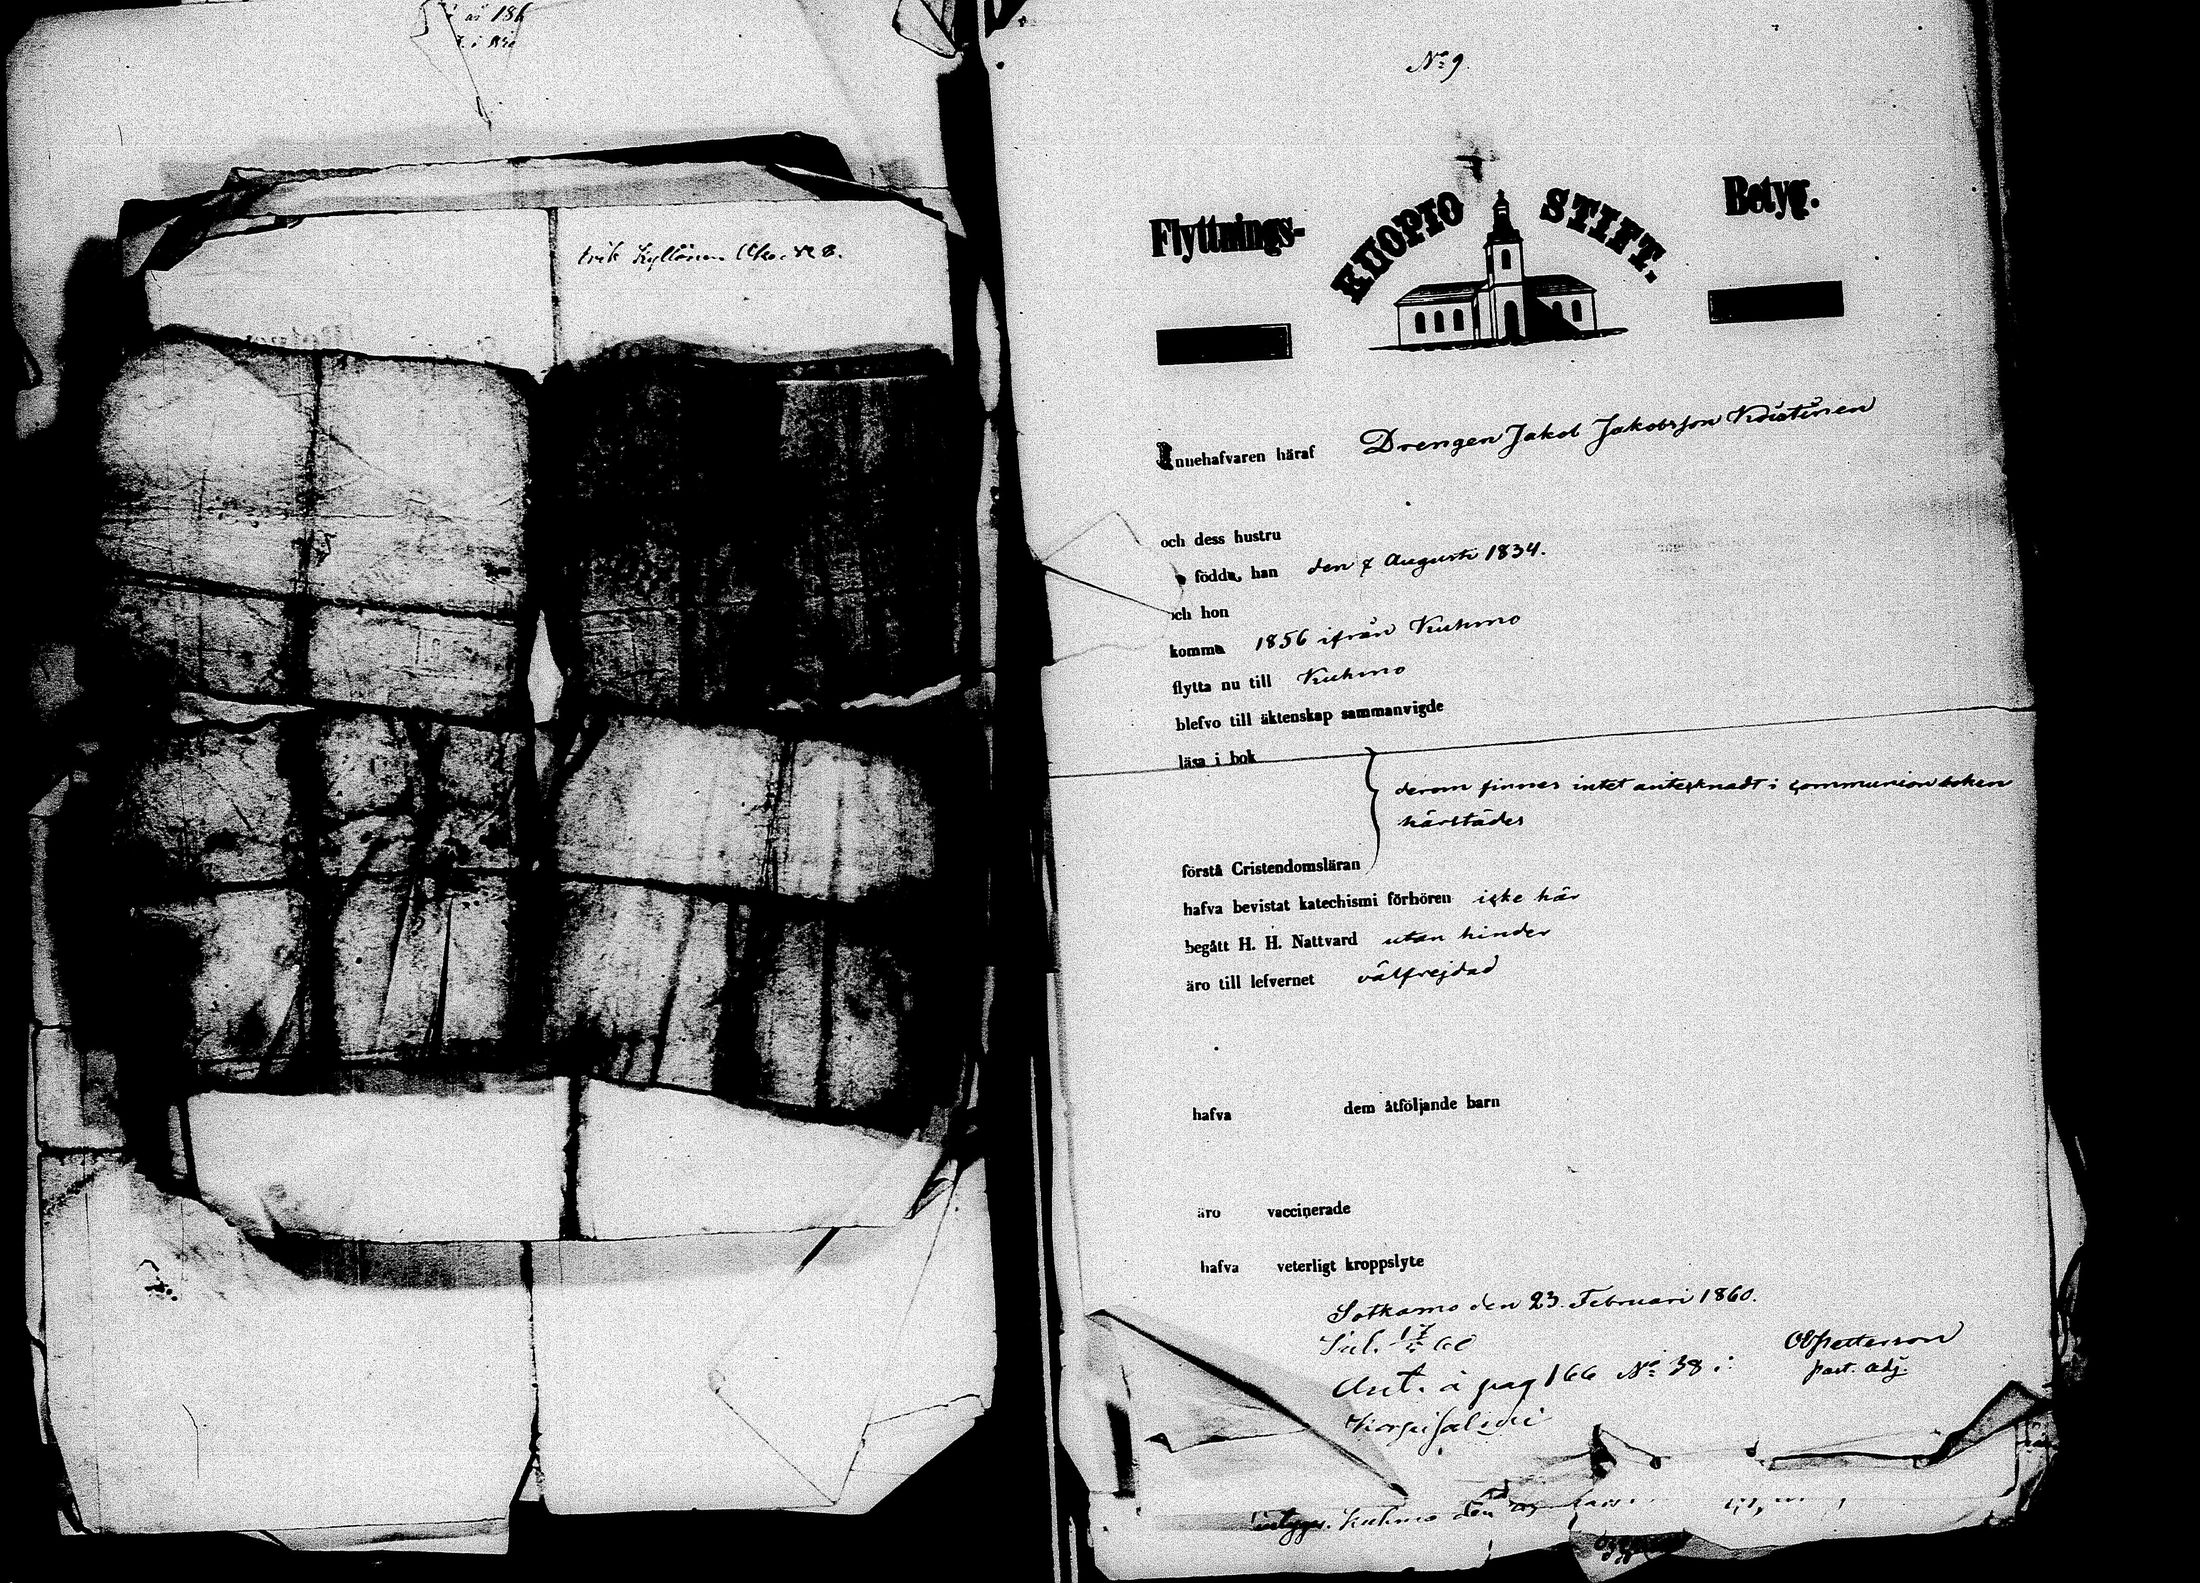 Erik Kyllönen
No 9.
Flyttnings-
KUOPIO STIFT.
Betyg.
Innehafvaren häraf Drengen Jakob Jakobsson
och dess hustru
födda, han den 7 Augusti 1834.
och hon
komma 1856 ifrån Kuhmo
flytta nu till Kuhmo
blefvo till äktenskap sammanvigde
läsa i bok
derom finnes intet antecknadt i communionboken
härstädes
förstå Cristendomsläran
hafva bevistat katechismi förhören icke här
begått H. H. Nattvard utan hinder
äro till lefvernet välfrejdad
hafva dem åtföljande barn
äro vaccinerade
hafva veterligt kroppslyte
Sotkamo den 23 Februari 1860.
OPetterson
past. adj.
Ant. å pag 166 No 38 i
Kuhmo den